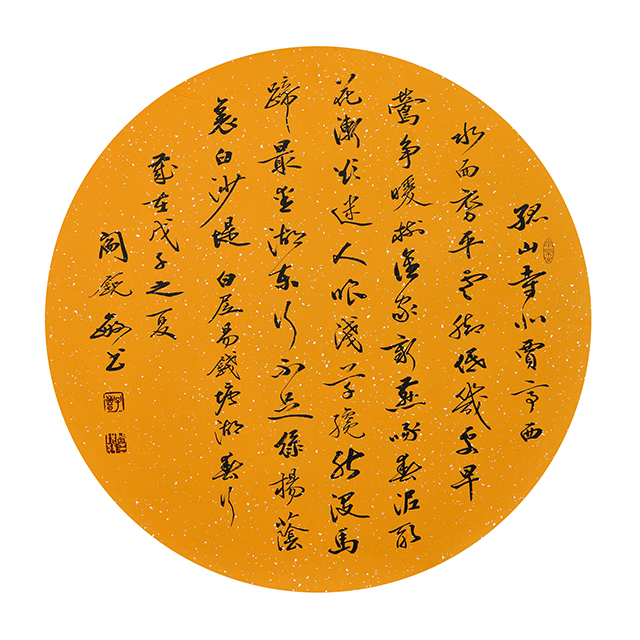 孤山寺北賈亭西
水面初平雲腳低幾處早
鶯爭暖樹誰家新燕啄春泥亂
花漸欲迷人眼淺草纔能沒馬
蹄最愛湖東行不足綠楊蔭
裏白沙堤 白居易錢塘湖春行
歲在戊子之夏
閻銳敏書